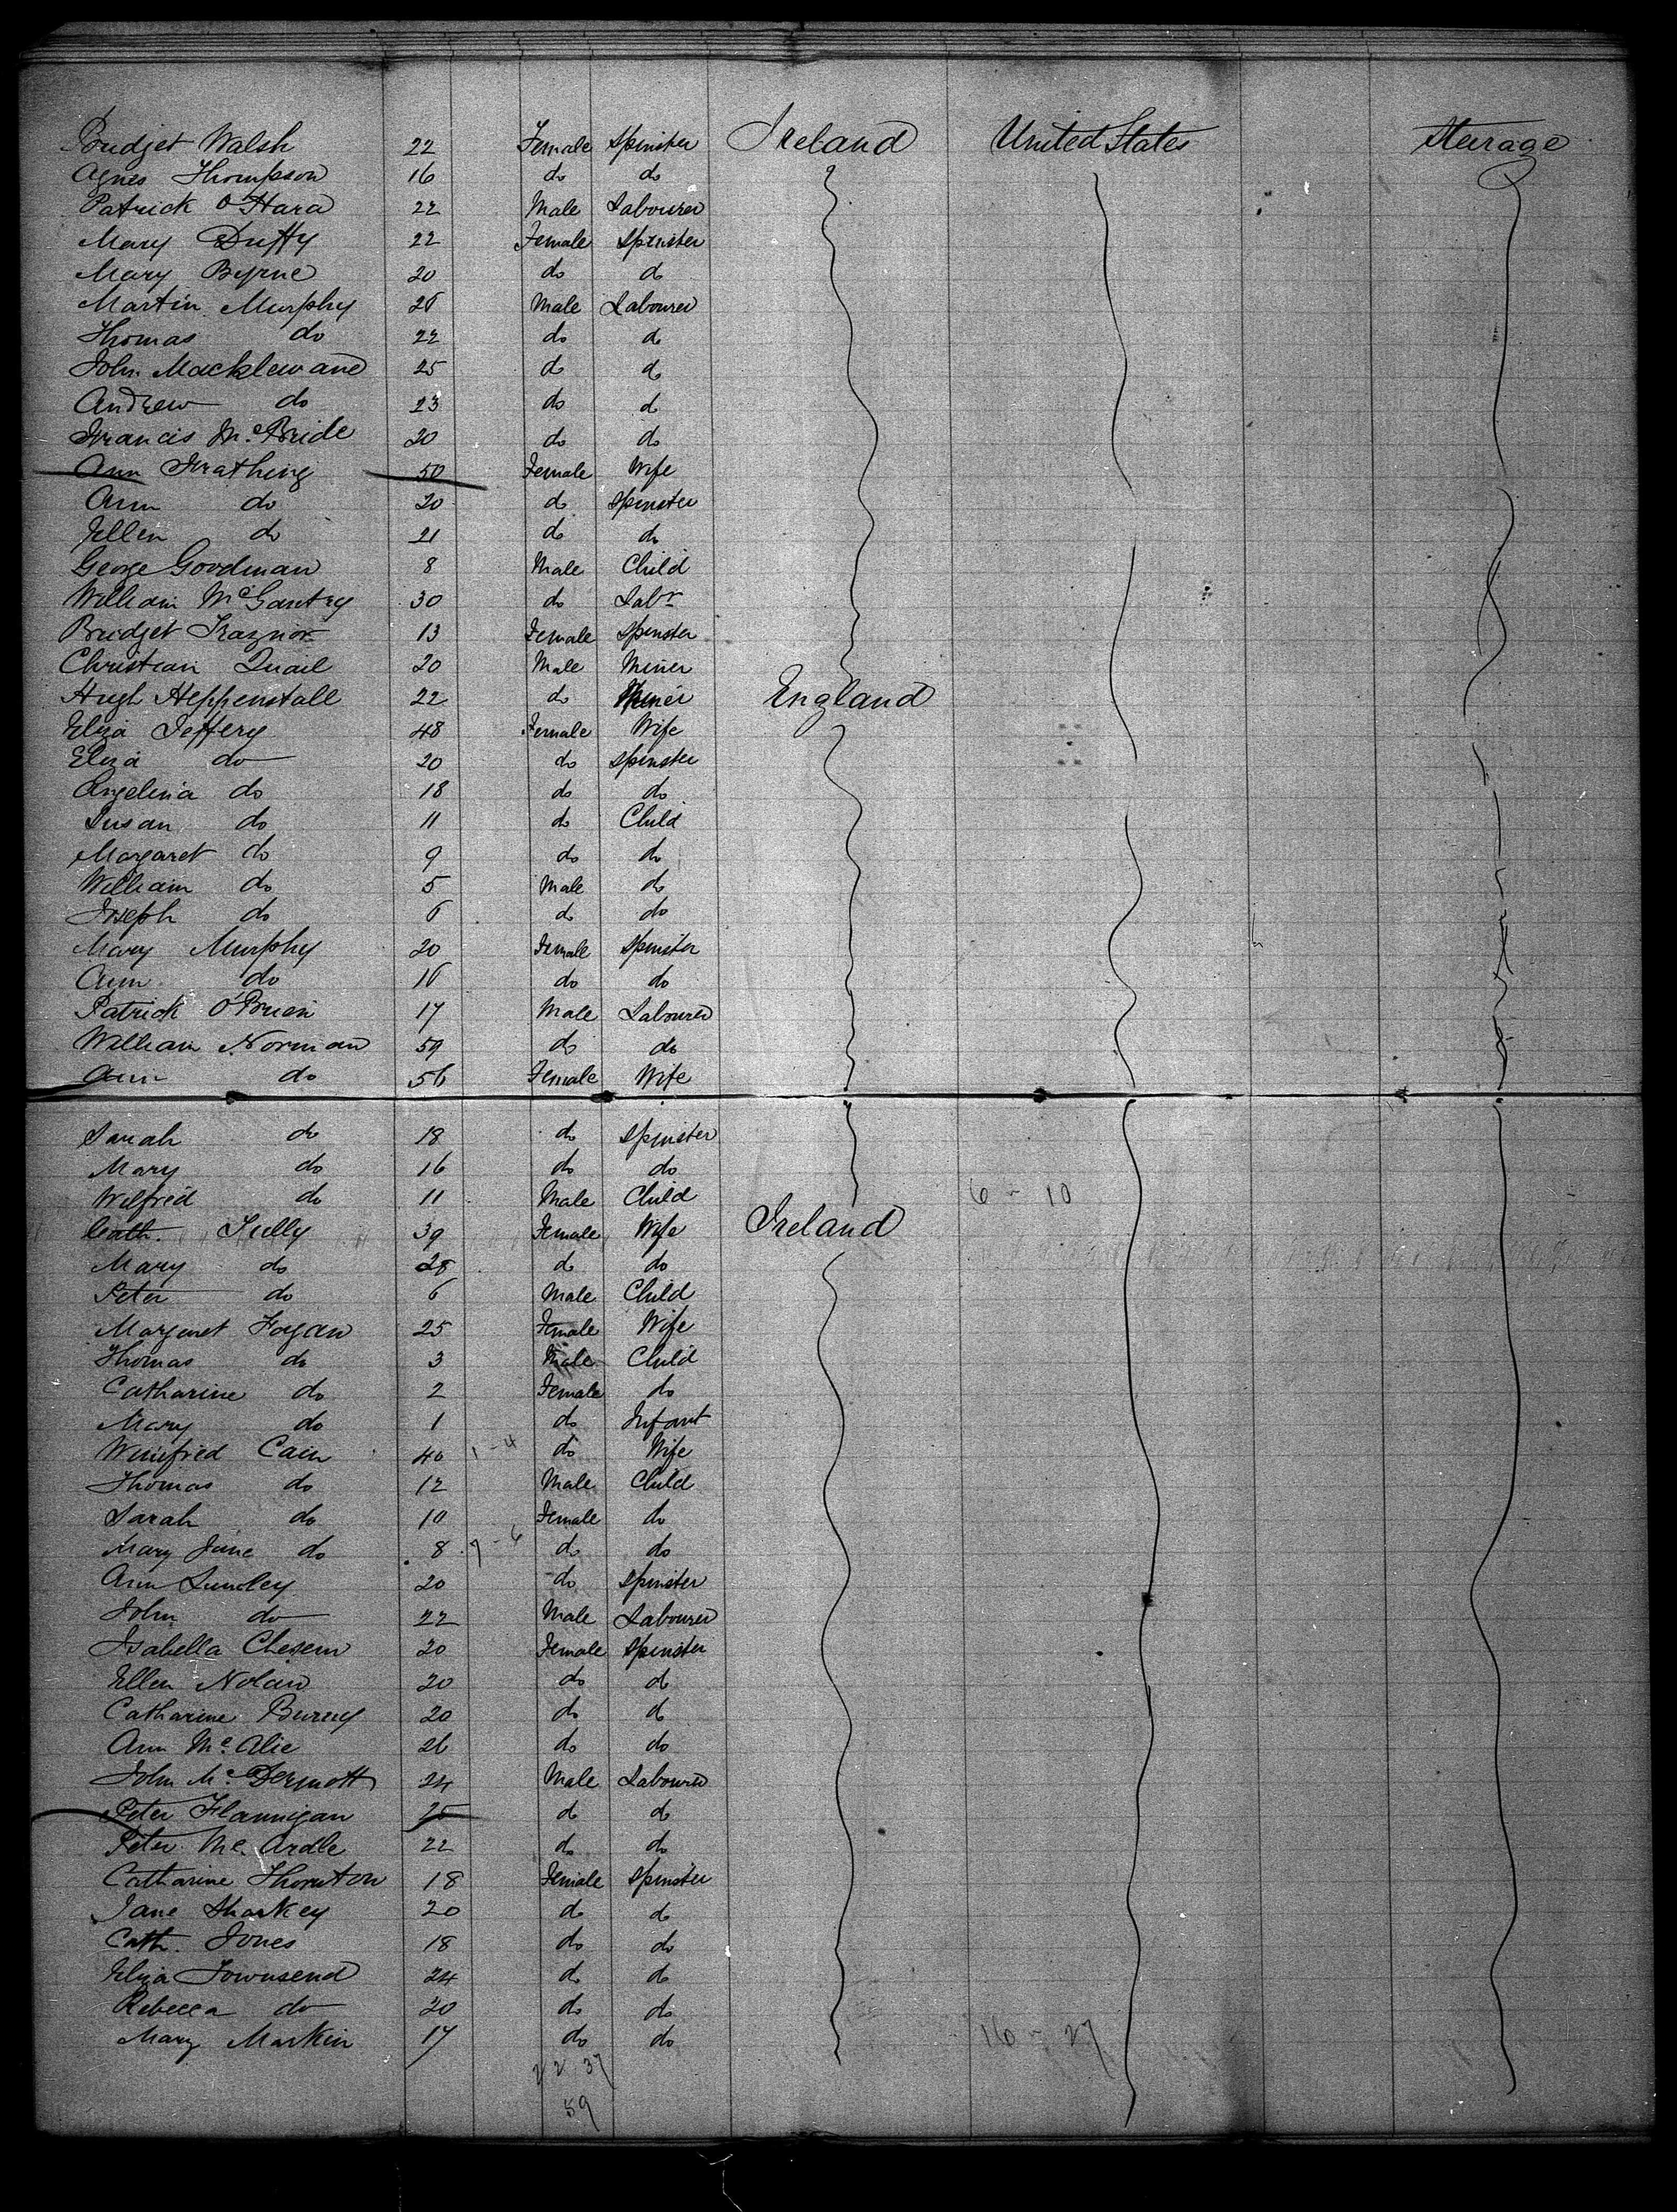 Bridget Walsh 22 Female Spinster Ireland United States Steerage
Agnes Thompson 16 do do
Patrick O'Hara 22 Male Labourer
Mary Duffy 22 Female Spinster
Mary Byrne 20 do do
Martin Murphy 26 Male Labourer
Thomas do 22 do do
John Macklewane 25 do do
Andrew do 23 do do
Francis McBride 20 do do
Ann 50 Female Wife
Ann do 20 do Spinster
Ellen do 21 do do
George Goodman 8 Male Child
William 30 do Labr
Bridget Traznor 13 Female Spinster
Christian Quail 20 Male Miner
Hugh Heppenstall 22 do Miner England
Eliza Jeffery 48 Female Wife
Eliza do 20 do Spinster
Angelina do 18 do do
Susan do 11 do Child
Margaret do 9 do do
William do 5 Male do
Joseph do 6 do do
Mary Murphy 20 Female Spinster
Ann do 16 do do
Patrick O'Brien 17 Male Labourer
William Norman 59 do do
Ann do 56 Female Wife
Sarah do 18 do Spinster
Mary do 16 do do
Wilfred do 11 Male Child 6 - 10
Cath. Tully 39 Female Wife Ireland
Mary do 28 do do
Peter do 6 Male Child
Margaret Fogan 25 Female Wife
Thomas do 3 Male Child
Catharine do 2 Female do
Mary do 1 do Infant
Winifred Cain 40 1-4 do Wife
Thomas do 12 Male Child
Sarah do 10 Female do
Mary Jane do 8 7-6 do do
Ann 20 do Spinster
John do 22 Male Labourer
Isabella 20 Female Spinster
Ellen Nolan 20 do do
Catharine 20 do do
Ann McAlie 26 do do
John McDermott 24 Male Labourer
Peter Flannigan 25 do do
Peter McArdle 22 do do
Catharine Thornton 18 Female Spinster
Jane Sharkey 20 do do
Cath. Jones 18 do do
Eliza Townsend 24 do do
Rebecca do 20 do do
Mary Markin 17 do do 16 - 27
22 37
59